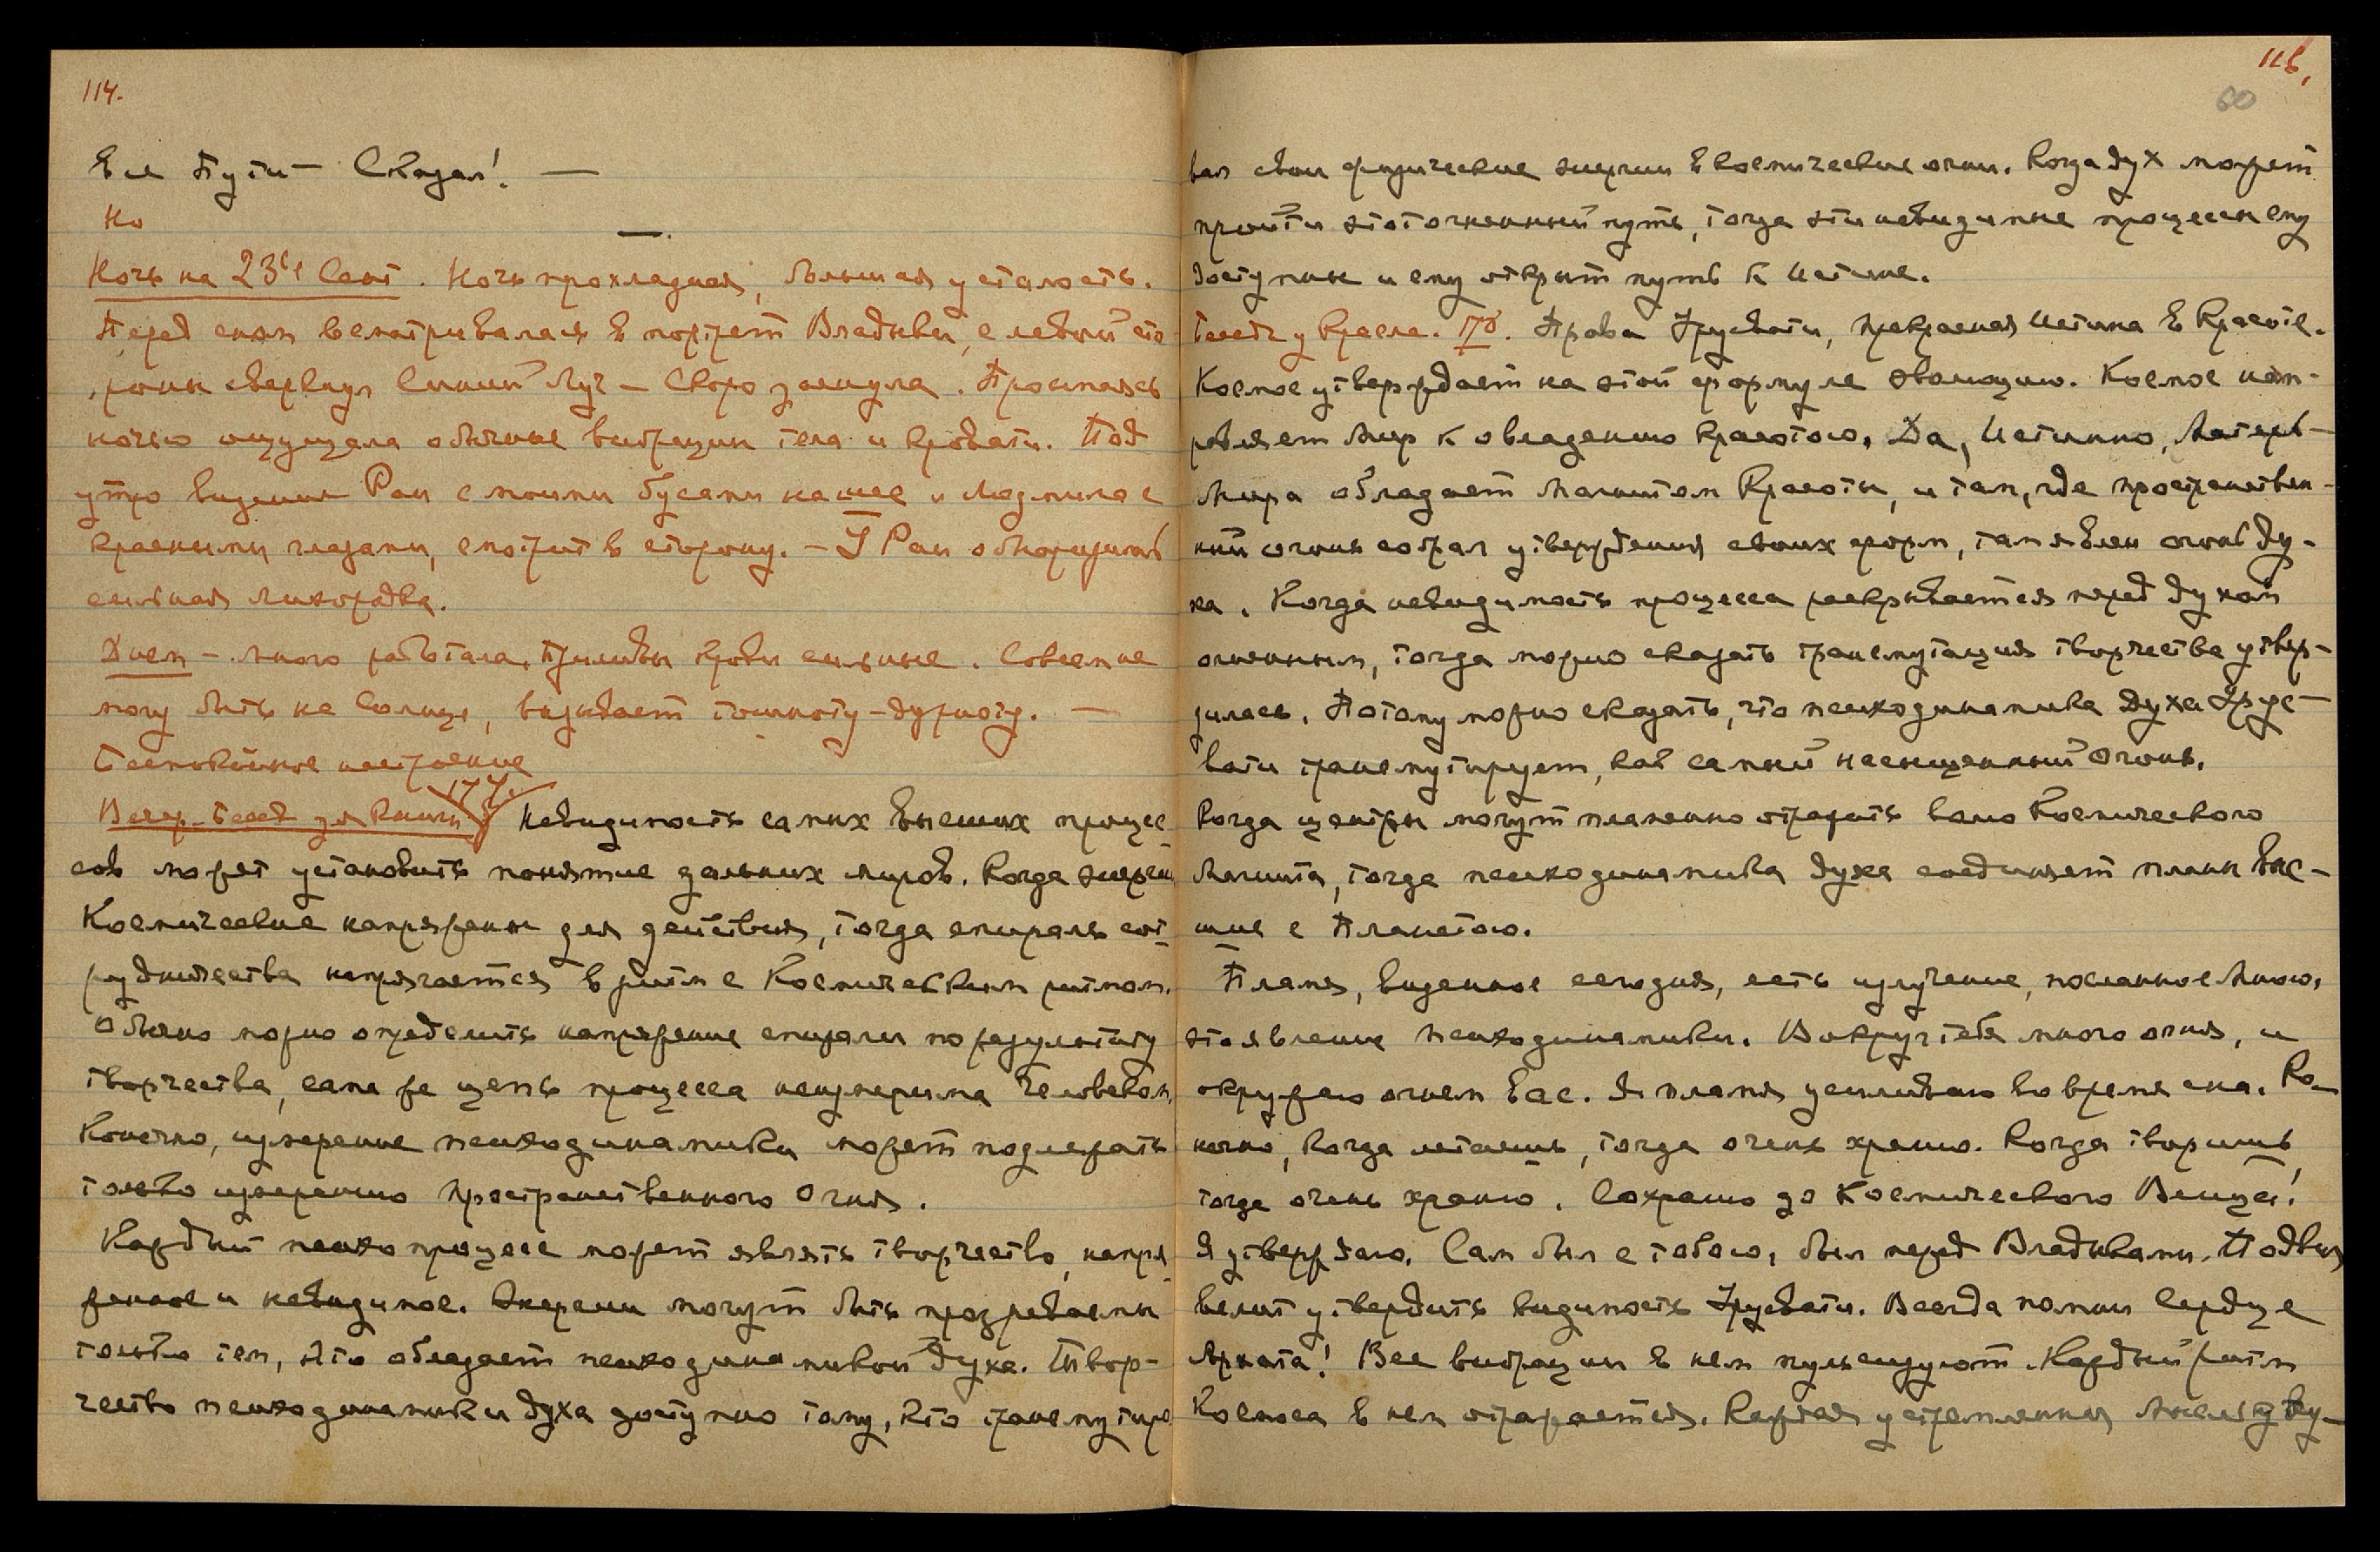 114.
Ея Пути — Сказал! —
Но
Ночь на 23ье Сент. Ночь прохладная, большая усталость.
Перед сном всматривалась в портрет Владыки, с левой сто-
роны сверкнул Синий Луч — Скоро заснула. Просыпаясь
ночью ощущала обычные вибрации тела и кровати. Под
утро видение Раи с моими бусами на шее и Людмила с
красными глазами, смотрит в сторону. — У Раи обнаружилась
сильная лихорадка.
Днем — много работала, приливы крови сильные. Совсем не
могу быть на Солнце, вызывает тошноту-дурноту. —
Беспокойное настроение
177.
Вечер. Бесед. для Книги Невидимость самых высших процес-
сов может установить понятие дальних миров. Когда энергии
Космические напряжены для действия, тогда спираль сот-
рудничества напрягается в ритм с Космическим ритмом.
Обычно можно определить напряжение спирали по результату
творчества, сама же цепь процесса неизмерима Человеком.
Конечно, измерение психодинамики может подлежать
только измерению Пространственного Огня.
Каждый психопроцесс может являть творчество, напря-
женное и невидимое. Энергии могут быть прозреваемы
только тем, кто обладает психодинамикой духа. Твор-
чество психодинамики духа доступно тому, кто трансмутиро-
115.
60
вал свои физические энергии в космические огни. Когда дух может
пройти этот огненный путь, тогда эти невидимые процессы ему
доступны и ему открыт путь к Истине.
Беседа у Кресла. 178. Права Урусвати, прекрасная Истина в Красоте.
Космос утверждает на этой формуле эволюцию. Космос нап-
равляет Мир к овладению красотою. Да, Истинно, Матерь-
Мира обладает Магнитом Красоты, и там, где пространствен-
ный огонь собрал утверждения своих форм, там явлен огонь ду-
ха. Когда невидимость процесса раскрывается перед духом
огненным, тогда можно сказать трансмутация творчества утвер-
дилась. Потому можно сказать, что психодинамика Духа Урус-
вати трансмутирует, как самый насыщенный Огонь.
Когда центры могут пламенно отражать волю Космического
Магнита, тогда психодинамика духа соединяет планы выс-
шие с Планетою.
Пламя, виденное сегодня, есть излучение, посланное Мною,
это явление психодинамики. Вокруг тебя много огня, и
окружаю огнем вас. Я пламя усиливаю во время сна. Ко-
нечно, когда летаешь, тогда очень храню. Когда творишь,
тогда очень храню. Сохраню до Космического Венца!
Я утверждаю. Сам был с тобою, был перед Владыками.
велит утвердить видимость Урусвати. Всегда помни Сердце
Архата! Все вибрации в нем пульсируют. Каждый ритм
Космоса в нем отражается. Каждая устремленная Мысль